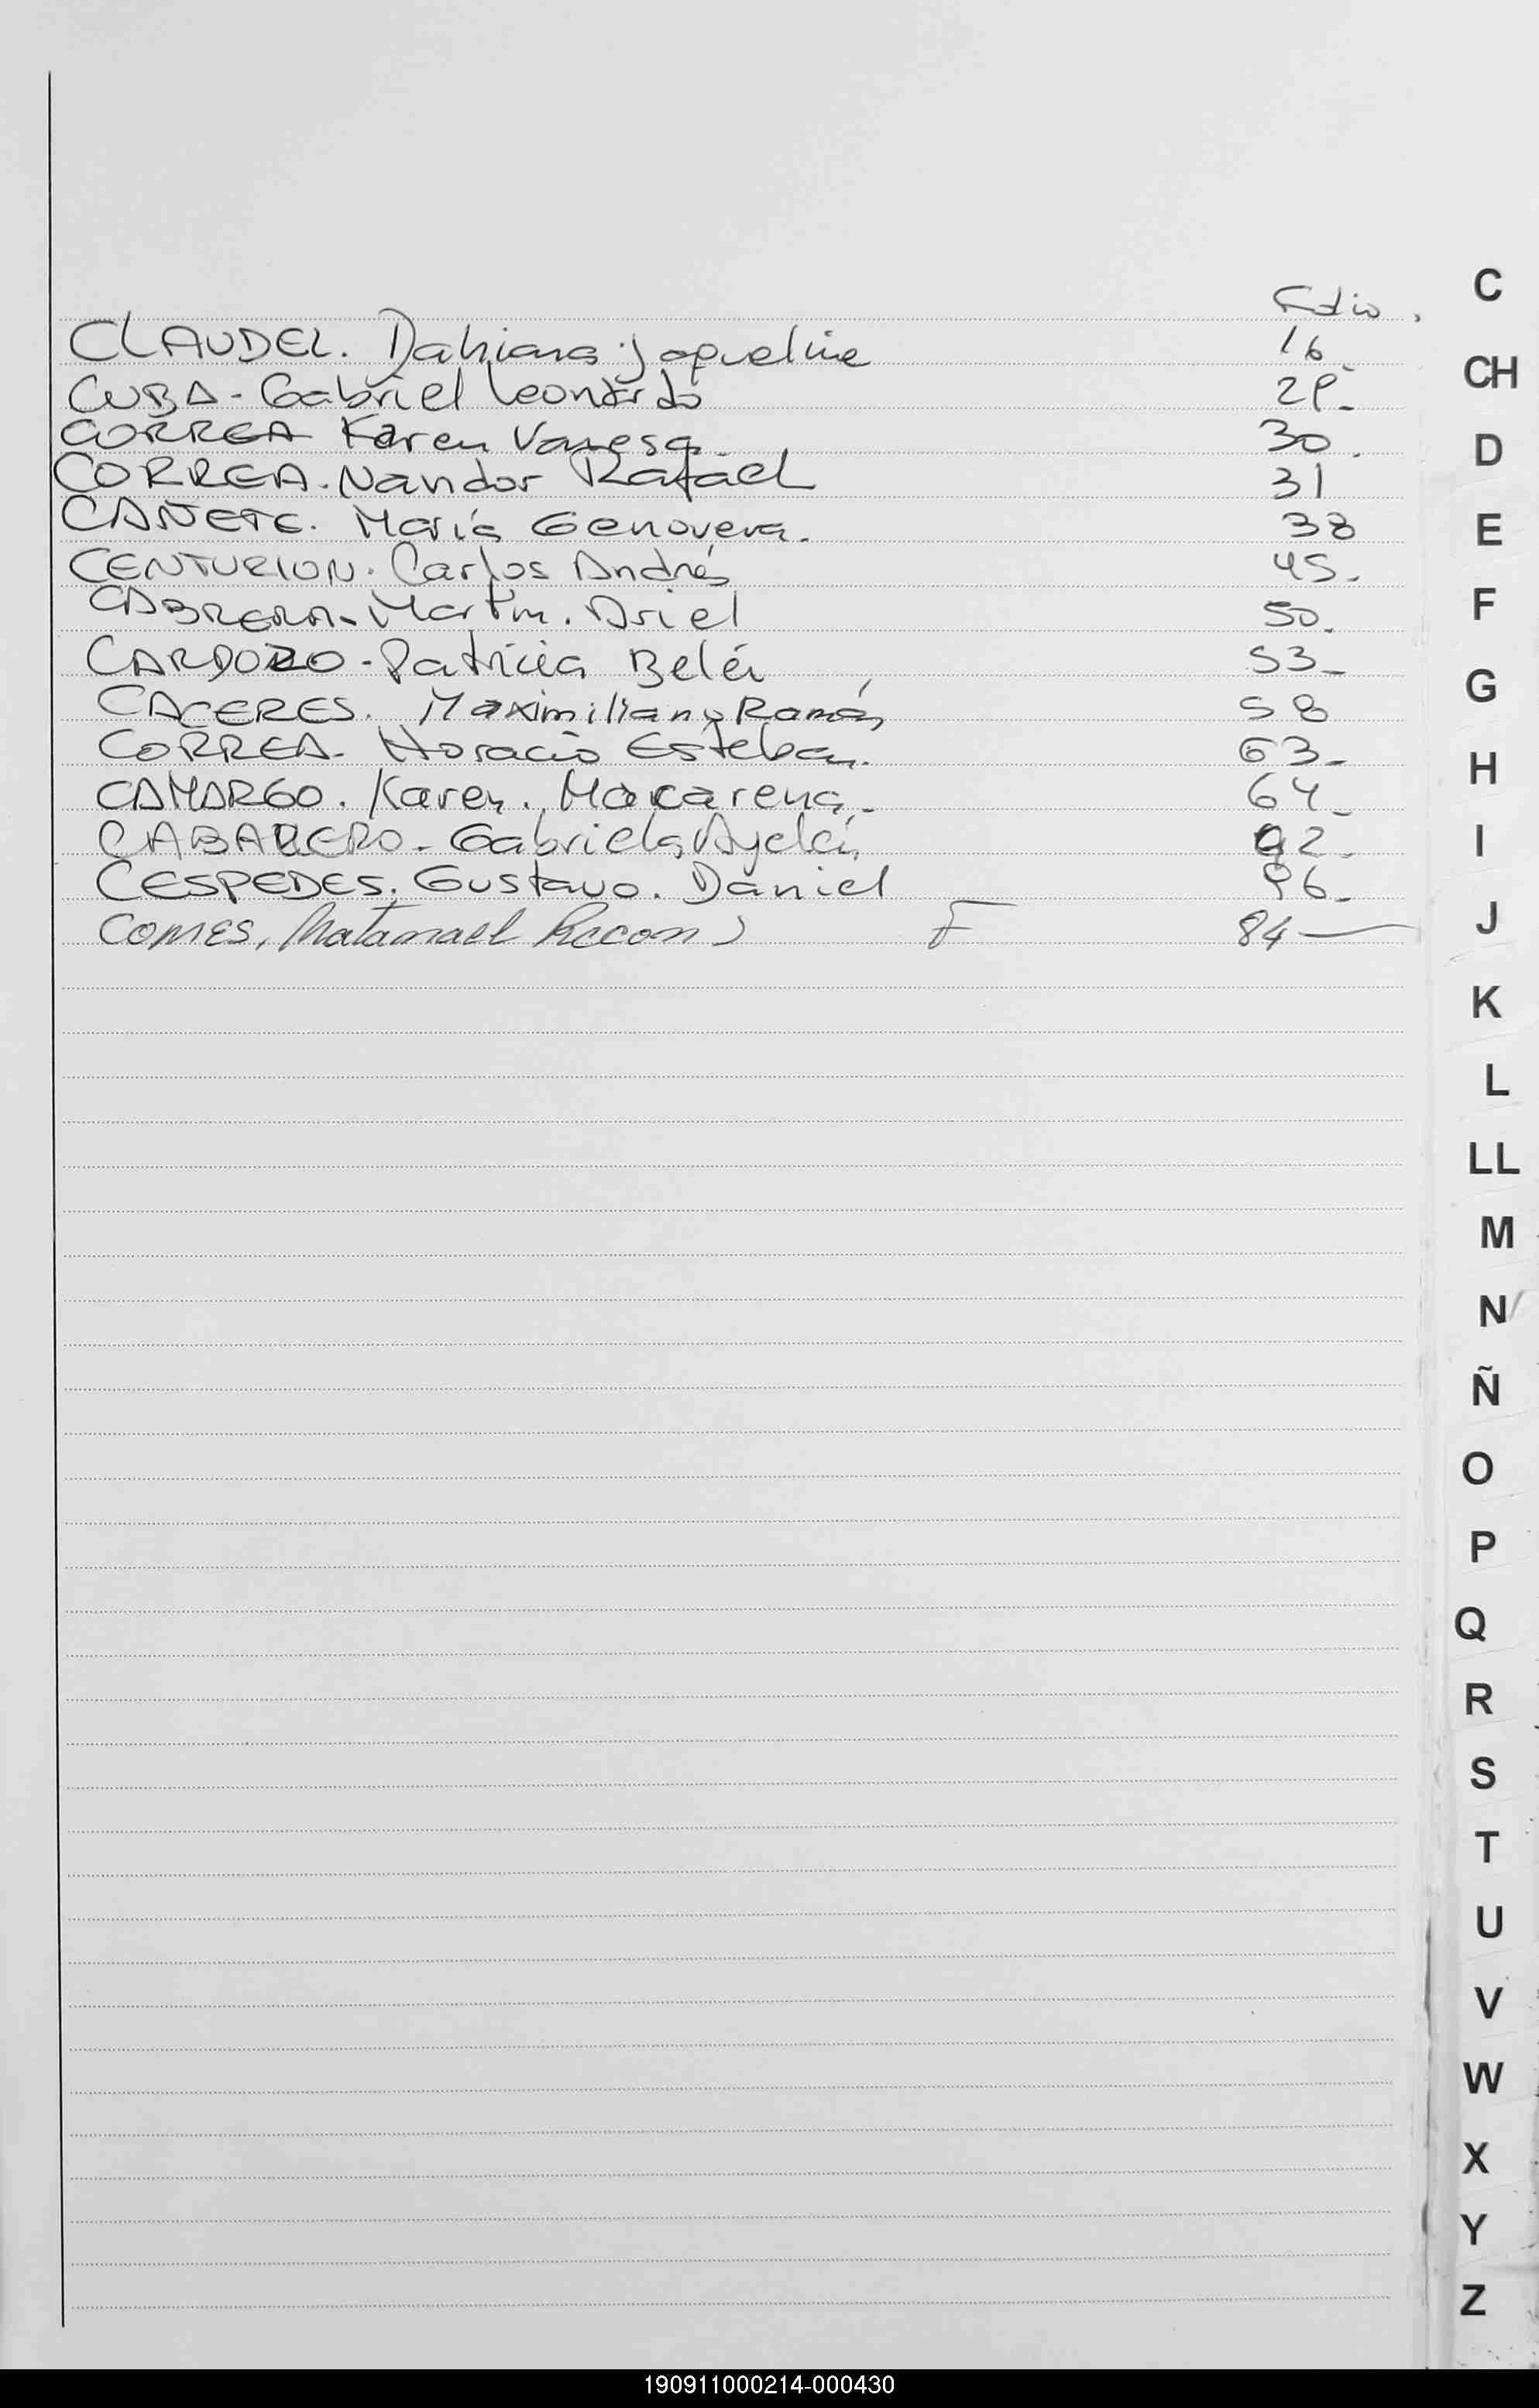 Folio.
CLAUDEL. Dahiana Jaqueline 16
CUBA - Gabriel Leonardo 29-
CORREA Karen Vanesa. 30.
CORREA. Nandor Rafael 31
CAÑETE. María Genoveva. 38
CENTURION. Carlos Andrés 45.
CABRERA - Martín. Ariel 50.
CARDOZO - Patricia Belén 53-
CACERES. Maximiliano Ramón 58
CORREA - Horacio Esteban. 63-
CAMARGO. Karen. Macarena. 64-
CABALLERO - Gabriela Ayelén 92-
CESPEDES. Gustavo. Daniel 96-
COMES, F 84—
C
CH
D
E
F
G
H
I
J
K
L
LL
M
N
Ñ
O
P
Q
R
S
T
U
V
W
X
Y
Z
190911000214-000430